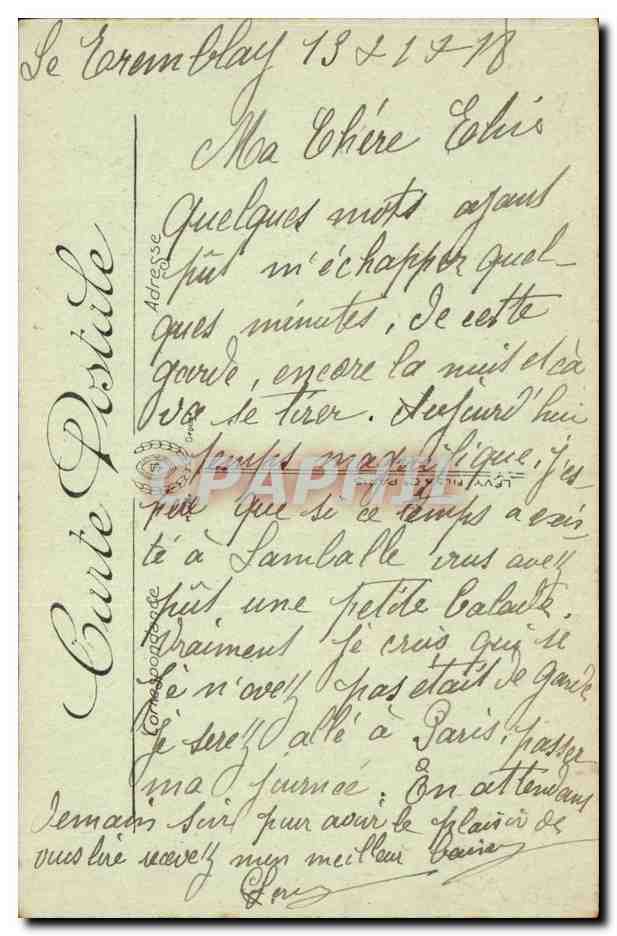 Le Tremblay 13 x 1 x 18
Ma Chére
Quelques mots ayant
pût m'échapper quel-
ques minutes, de cette
garde, encore la nuit et cà
va se tirer. Aujourd'hui
temps magnifique, j'es-
père que si ce temps a exis-
té à Lamballe vous avez
pût une petite balade.
Vraiment je crois qui si
je n'avez pas était de garde
je serez allé à Paris, passer
ma journée. En attendant
demain soir pour avoir le plaisir de
vous lire recevez mon meilleur baiser
Carte Postale
Correspondance
Adresse
LEVY FILS & Cie PARIS
CPAPHIL